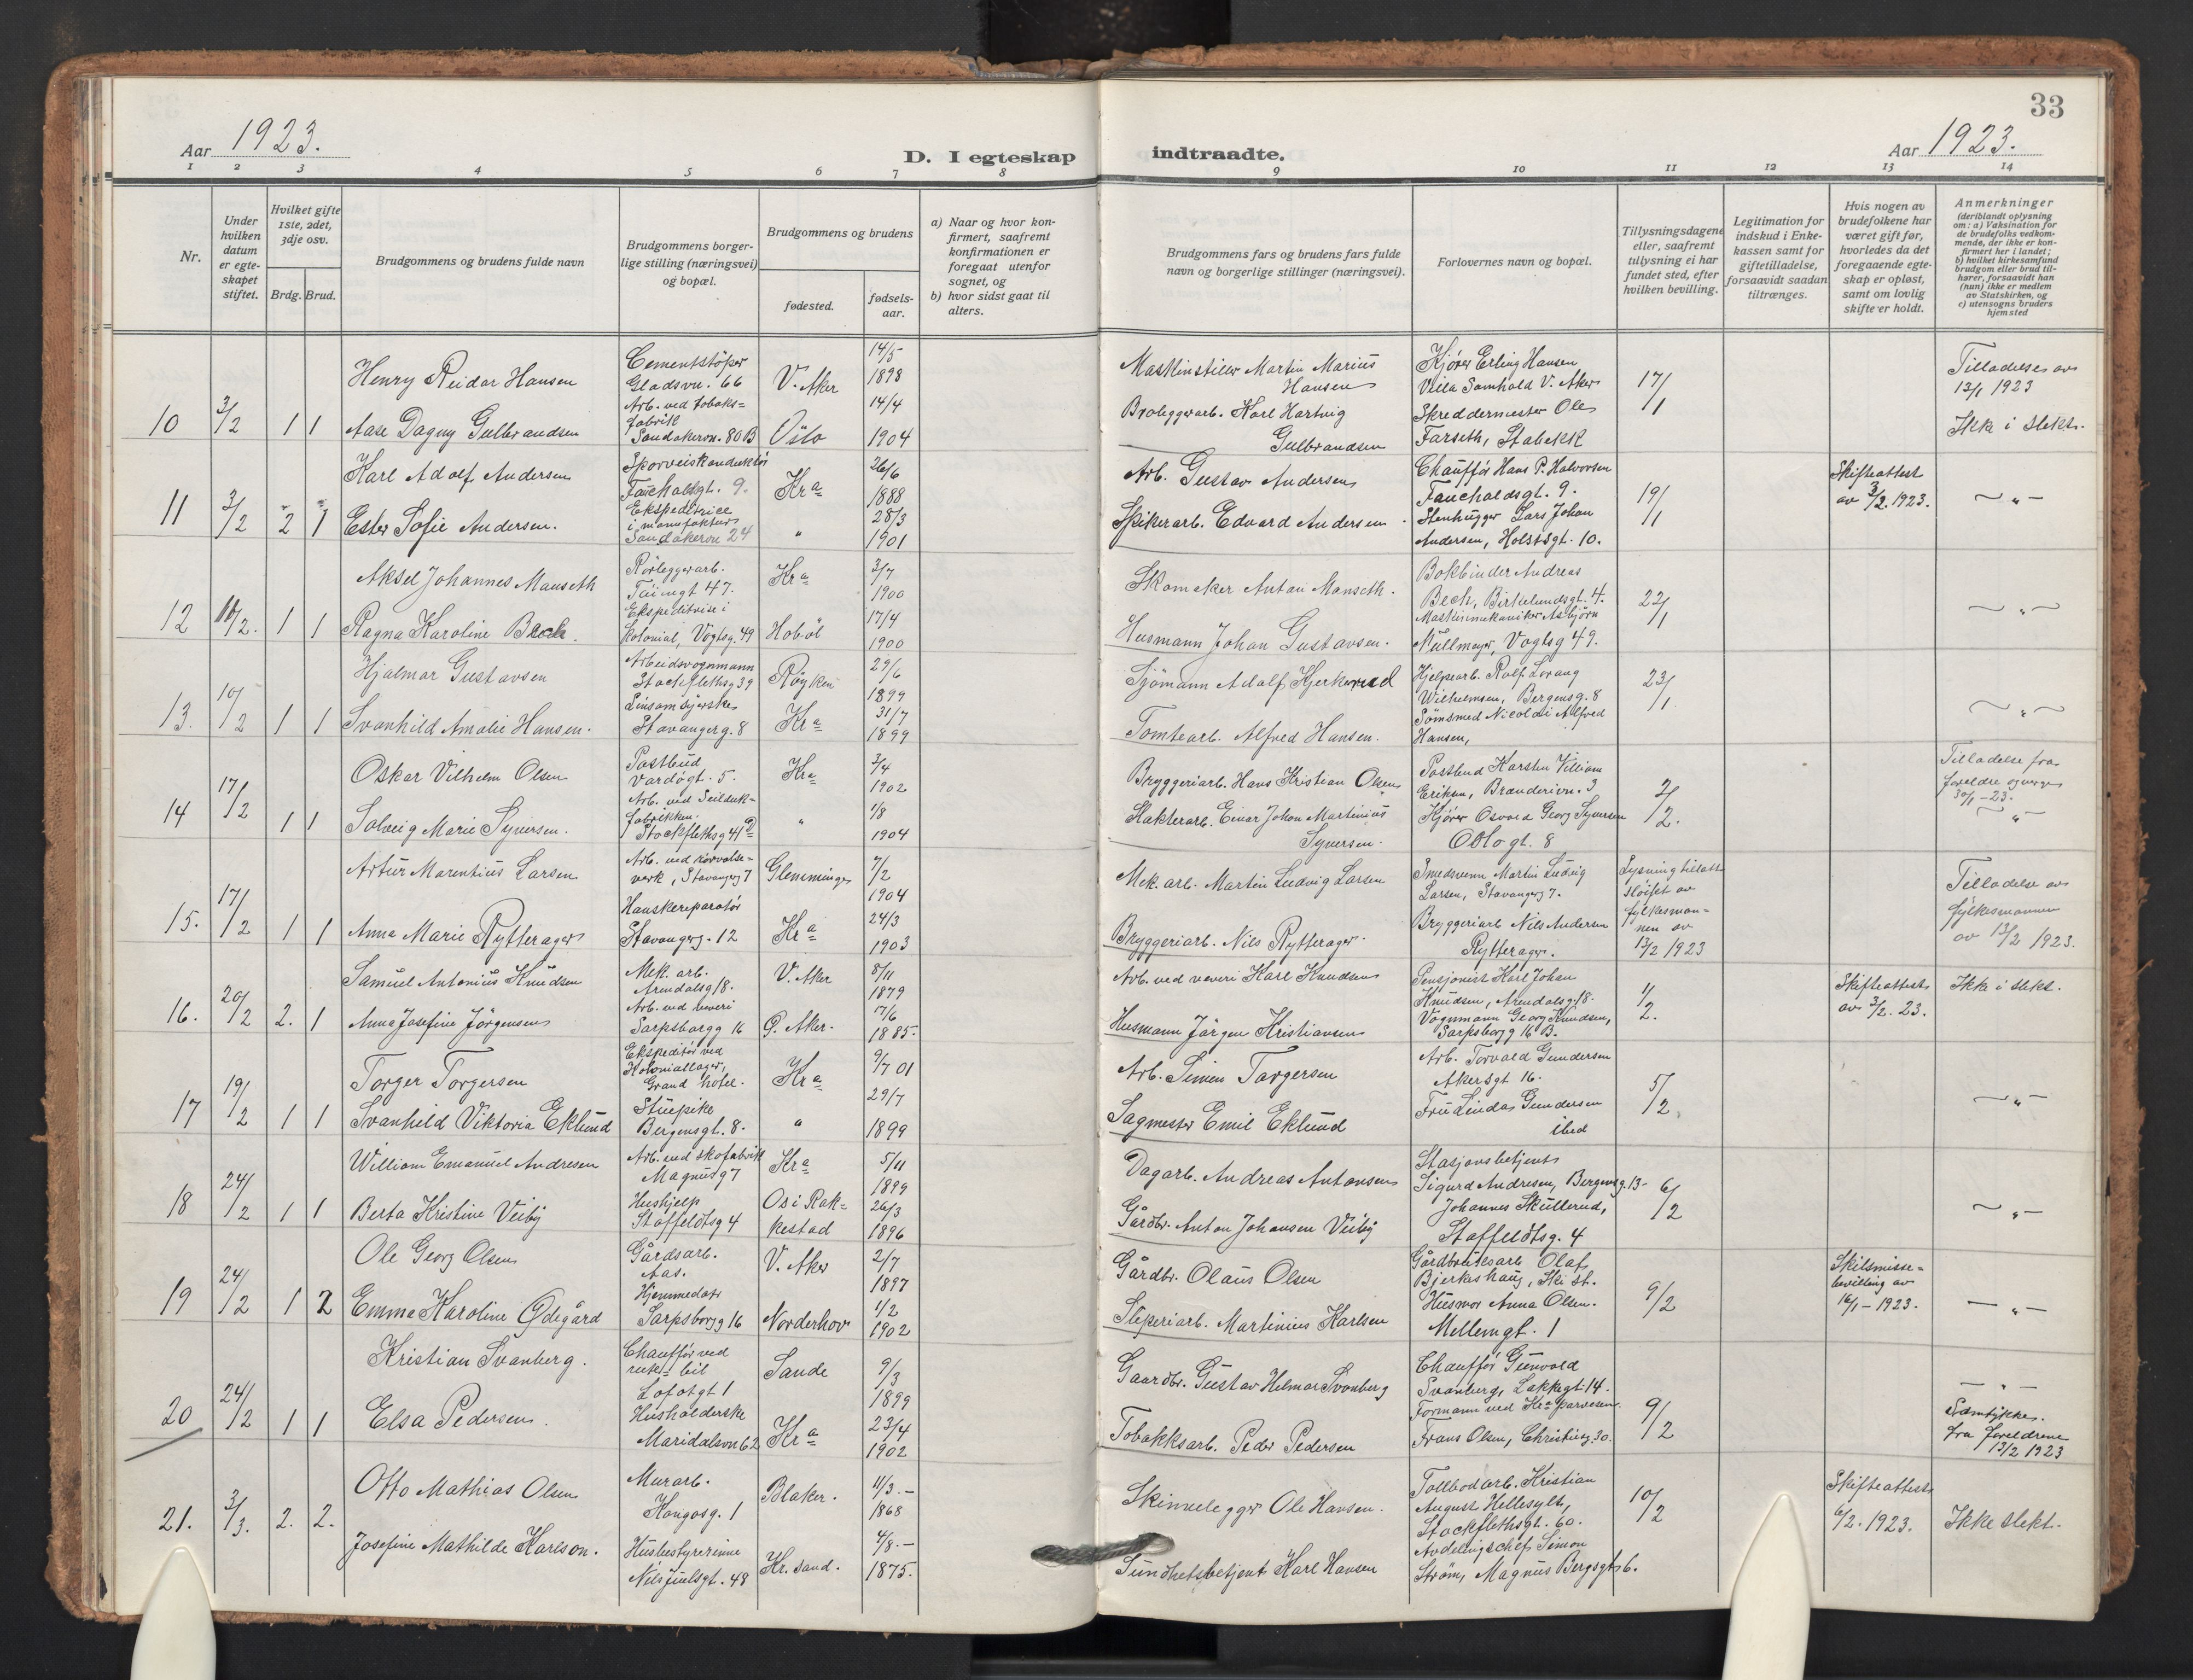 33
Aar 1923.
D. I egteskap
indtraadte.
Aar 1923.
1 2 3 4 5 6 7 8
9 10 11 12 13 14
Nr.
Under hvilken datum er egteskapet stiftet.
Hvilket gifte 1ste, 2det, 3dje osv.
Brdg. Brud.
Brudgommens og brudens fulde navn
Brudgommens borgerlige stilling (næringsvei) og bopæl.
Brudgommens og brudens
fødested.
fødselsaar.
a) Naar og hvor konfirmert, saafremt konfirmationen er foregaat utenfor sognet, og
b) hvor sidst gaat til alters.
Brudgommens fars og brudens fars fulde navn og borgerlige stillinger (næringsvei).
Forlovernes navn og bopæl.
Tillysningsdagene eller, saafremt tillysning ei har fundet sted, efter hvilken bevilling.
Legitimation for indskud i Enkekassen samt for giftetilladelse, forsaavidt saadan tiltrænges.
Hvis nogen av brudefolkene har været gift før, hvorledes da det foregaaende egteskap er opløst, samt om lovlig skifte er holdt.
Anmerkninger
(deriblandt oplysning om: a) Vaksination for de brudefolks vedkommende, der ikke er konfirmert her i landet; b) hvilket kirkesamfund brudgom eller brud tilhører, forsaavidt han (hun) ikke er medlem av Statskirken, og c) utensogns bruders hjemsted
10 3/2 1 1
Henry Reidar Hansen
Cementstöper
Gladsvn. 66
V. Aker
14/5 1898
Maskinstiller Martin Marius Hansen
Kjörer Erling Hansen
Villa Samhold V. Aker
17/1
Tilladelse av 13/1 1923
Aase Dagny Gulbrandsen
Arb. ved tobaksfabrik
Sandakervn. 80 B
Oslo
14/4 1904
Broleggerarb. Karl Hartvig Gulbrandsen
Skreddermester Ole Farseth, Stabekk
Ikke i slekt.
11 3/2 2 1
Karl Adolf Andersen
Sporveiskonduktör
Faucholdsgt. 9.
Kra
26/6 1888
Arb. Gustav Andersen
Chaufför Hans P. Halvorsen
Faucholdsgt. 9.
19/1
Skifteattest av 3/2. 1923.
— " —
Ester Sofie Andersen.
Ekspeditrice i manufaktur
Sandakervn 24
"
28/3 1901
Spikerarb. Edvard Andersen.
Stenhugger Lars Johan Andersen, Holstsgt. 10.
12 10/2. 1 1
Aksel Johannes Manseth
Rörleggerarb.
47.
Kra
3/7 1900
Skomaker Anton Manseth.
Bokbinder Andreas Bech, Birkelundsgt. 4.
22/1
— " —
Ragna Karoline Bech.
Ekspeditrise i Kolonial, Vogtsg. 49
Hoböl
17/4 1900
Maskinmekaniker Asbjörn
Müllmayer, Vogtsg 49.
Husmann Johan Gustavsen.
13. 10/2 1 1
Hjalmar Gustavsen
Arbeidsvognmann
Stockflethsg 39
Röyken
29/6 1899
Sjömann Adolf Hjerkerud
Hjelpearb. Rolf Lorang Wilhelmsen, Bergensg. 8
23/1
— " —
Svanhild Amalie Hansen.
Linsömsyerske
Stavangerg. 8
Kra
31/7 1899
Tomtearb. Alfred Hansen.
Sömsmed Nicolai Alfred Hansen,
14 17/2 1 1
Oskar Vilhelm Olsen
Postbud
Vardögt. 5.
Kra
3/4 1902
Bryggeriarb. Hans Kristian Olsen
Postbud Karsten Villiam Eriksen, Brænderivn. 3
2/2.
Tilladelse fra foreldre og verge 30/1 - 23.
— " —
Solveig Marie Syversen.
Arb. ved Seildukfabrikken.
Stockflethsg 41 D
"
1/8 1904
Slakterarb. Einar Johan Martinius Syversen.
Kjörer Osvald Georg Syversen
Oslogt. 8
15. 17/2 1 1
Artur Marentius Larsen
Arb. ved rörvalseverk, Stavangerg 7
Glemminge
7/2 1904
Mek. arb. Martin Ludvig Larsen
Smedsvenn Martin Ludvig Larsen, Stavangerg 7.
Lysning tillatt slöifet av fylkesmannen av 13/2 1923
Tilladelse av fylkesmannen av 13/2 1923.
Anna Marie Rytterager
Hanskereparatör
Stavangerg. 12
Kra
24/3 1903
Bryggeriarb. Nils Rytterager.
Bryggeriarb Nils Andersen Rytterager.
16. 20/2 2. 1
Samuel Antonius Knudsen
Mek. arb.
Arendalsg 18.
V. Aker
8/11 1879
Arb. ved veveri Karl Knudsen
Pensjonist Karl Johan Knudsen, Arendalsg. 18.
1/2.
Skifteattest av 3/2. 23.
Ikke i slekt.
Anna Josefine Jörgensen
Arb. ved veveri
Sarpsborgg 16
Ö. Aker.
17/6 1885.
Husmann Jörgen Kristiansen
Vognmann Georg Knudsen, Sarpsborgg 16 B.
17 19/2 1 1
Torger Torgersen
Ekspeditör ved Koloniallager, Grand hotel.
Kra
9/7 01
Arb. Simen Torgersen
Arb. Torvald Gundersen
Akersgt 16.
5/2.
— " —
Svanhild Viktoria Eklund
Stuepike
Bergensgt. 8.
"
29/7 1899
Sagmester Emil Eklund
Fru Linda Gundersen ibid
18 24/2 1 1
William Emanuel Andresen
Arb. ved skofabrik
Magnusg 7
Kra
5/11 1899
Dagarb. Andreas Antonsen
Stasjonsbetjent Sigurd Andresen, Bergensg. 13-
6/2
— " —
Berta Kristine Veiby
Hushjelp
Staffeldtsg 4
Os i Rakkestad
26/3 1896
Gårdbr. Anton Johansen Veiby
Johannes Skullerud, Staffeldtsg. 4
19 24/2 1 2
Ole Georg Olsen
Gårdsarb.
Aas.
V. Aker
2/7 1897
Gårdbr. Olaus Olsen
Gårdbrukerarb Olaf Bjerkeshaug, Ski st.
9/2
Skilsmissebevilling av 16/1 - 1923.
— " —
Emma Karoline Ødegård
Hjemmedatr
Sarpsborgg 16
Norderhov
1/2 1902
Sliperiarb. Martinius Karlsen
Husmor Anna Olsen.
Mellemgt. 1
20 24/2 1 1
Kristian Svanberg.
Chaufför ved rutebil
Lofotgt 1
Sande
9/3 1899
Gaardbr. Gustav Helmar Svanberg
Chaufför Gunvald Svanberg, Lakkegt. 14.
9/2
— " —
Elsa Pedersen.
Husholderske
Maridalsvn 62
Kra
23/4 1902
Tobakksarb. Peder Pedersen
Formann ved Kra parvesen Frans Olsen, Christiesg. 30.
Samtykke fra foreldrene 13/2 1923
21. 3/3. 2. 2.
Otto Mathias Olsen
Murarb.
Kongosg. 1
Blaker.
11/3.- 1868
Skinnelegger Ole Hansen.
Tollbodarb. Kristian August Hellesylt, Stockflethsgt. 60.
10/2
Skifteattest 6/2. 1923.
Ikke slekt.
Josefine Mathilde Karlson.
Husbestyrerinne
Nils Juelsgt. 48
Kr.sand.
4/8.- 1875.
Sundhetsbetjent Karl Hansen
Avdelingschef Simon Ström, Magnus Bergsgt 6.